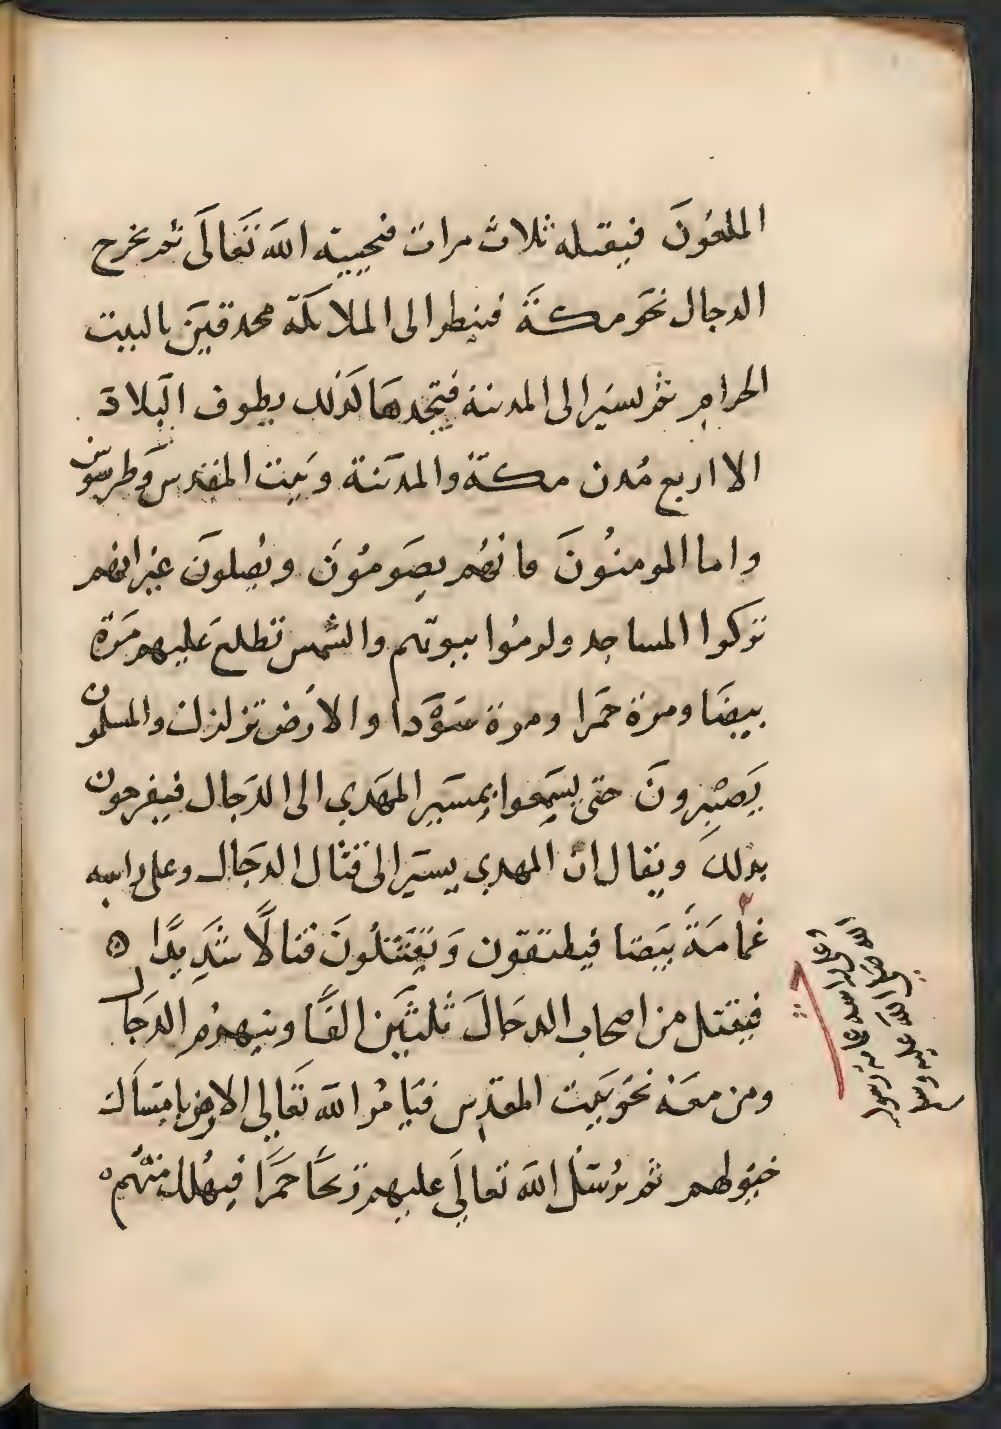 الملعُونَ فيقتله ثلاث مرات فيحييه الله تعَالَى ثم يخرج
الدجال نحَو مكةَ فينظر الى الملائكة محدقينَ بالبيت
الحرام ثم يسير الى المدينة فيجدها كذلك يطوف البَلاد
الا اربع مُدن مكةَ والمدَينة وبَيت المقدس وطرسوس
واما المومنُونَ فانهُم يصَومُونَ ويُصلونَ غير انهم
تركوا المساجد ولزمُوا بيوتهم والشمس تطلع عليهم مَرة
بيضَا ومرة حمَرا ومرة سَوَّدا والارَض تزلزلت والمسلمون
يَصْبِرونَ حتى يسَمِعوا بِمسَير المهَدي الى الدَجال فيفرحون
بذلك ويقال ان المهدي يسيَر الى قتال الدجَال وعلى راسه
غمامَةً بيَضا فيلتقون وَيَقتَتلُونَ قتالًا شَدِيدًا
فيقتل من اصحاب الدجالَ ثلثَين الفًا وينهزُم الدجَال
ومن معَهُ نحَو بَيت المقدس فيَامُر الله تعَالي الارض بامسَاك
خيولهم ثم يُرسَل الله تعالَي عليهم ريحًا حمَرَا فيهُلك منهُم
وعلى راسه عمامة رسول
الله صلى الله عليه وسلم